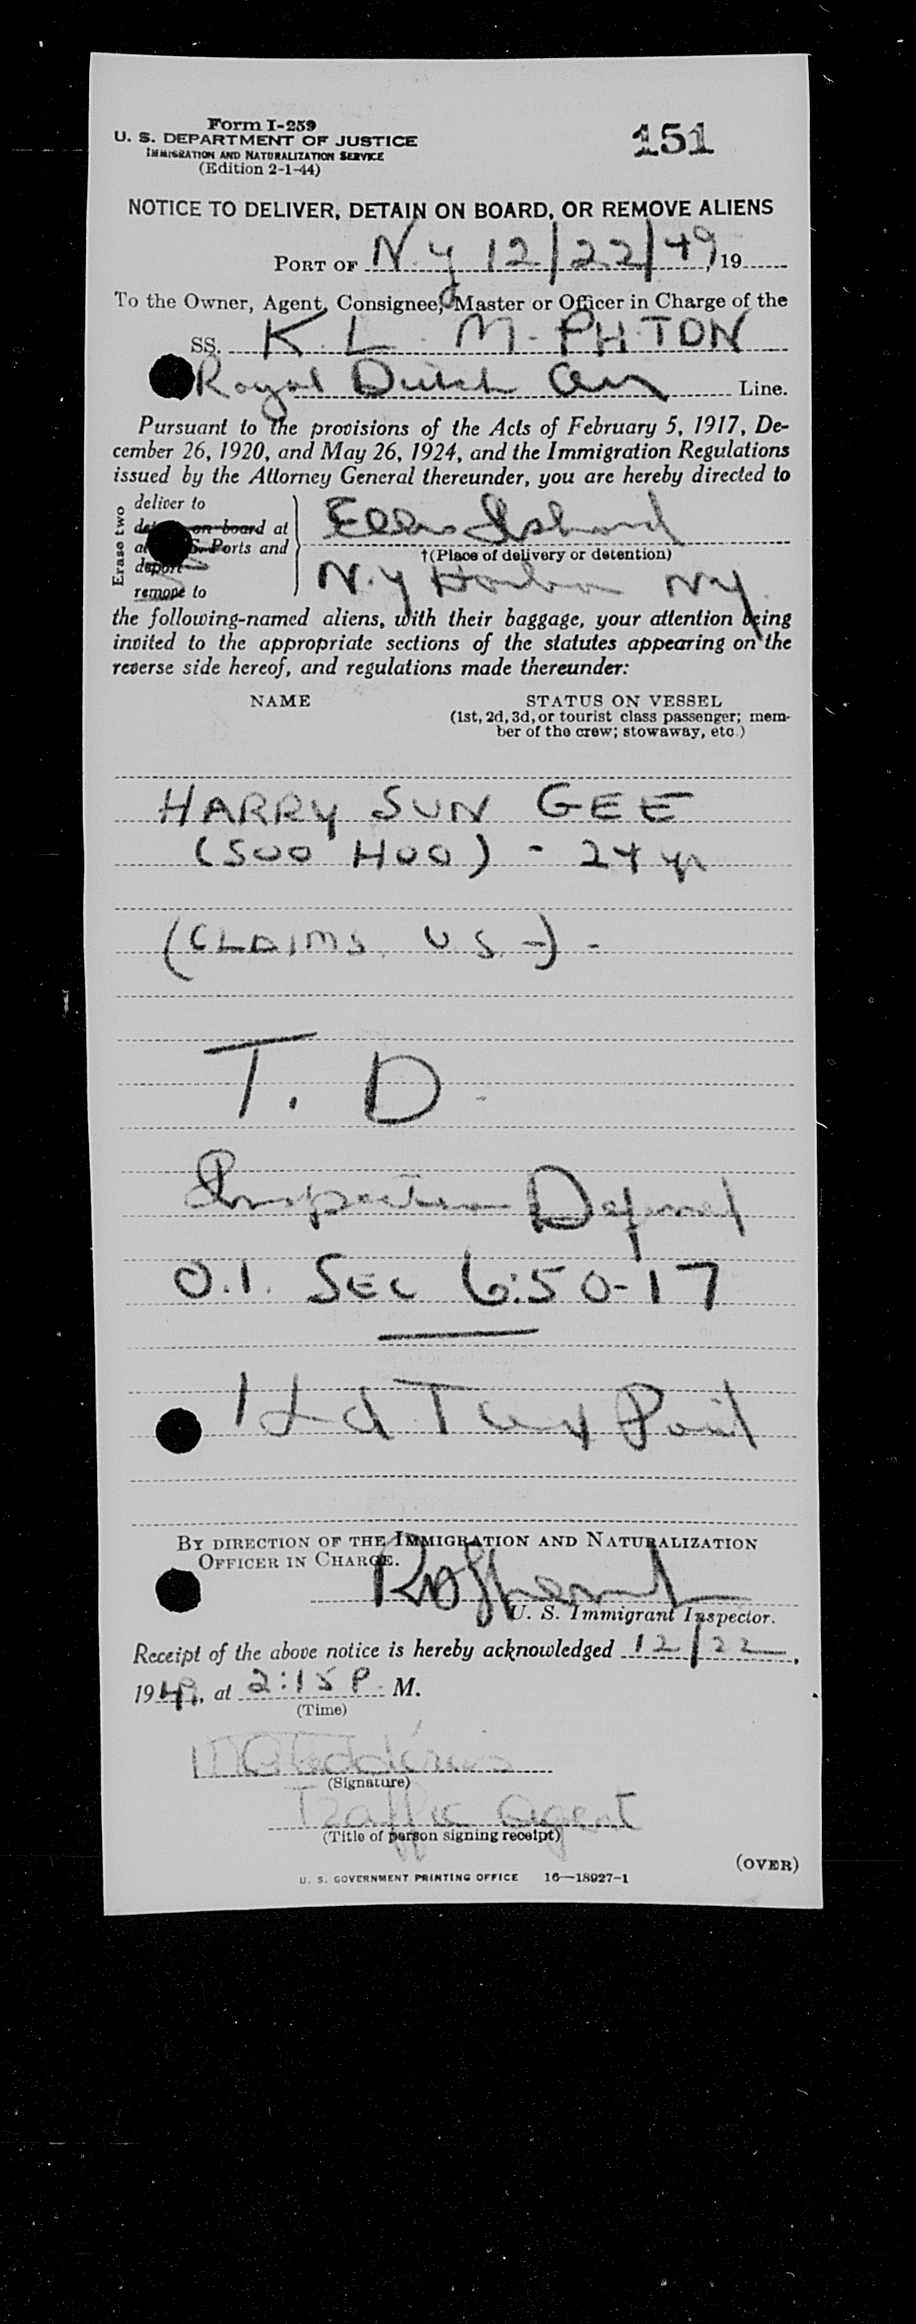 Form I-259
U. S. DEPARTMENT OF JUSTICE
IMMIGRATION AND NATURALIZATION SERVICE
(Edition 2-1-44)
151
NOTICE TO DELIVER, DETAIN ON BOARD, OR REMOVE ALIENS
PORT OF N.Y 12/22/49, 19
To the Owner, Agent, Consignee, Master or Officer in Charge of the
SS. K. L. M - PH-TDN
Royal Dutch Air Line.
Pursuant to the provisions of the Acts of February 5, 1917, De-
cember 26, 1920, and May 26, 1924, and the Immigration Regulations
issued by the Attorney General thereunder, you are hereby directed to
Erase two
deliver to
on board at
Ports and
deport
remove to
Ellis Island
†(Place of delivery or detention)
N.Y Harbor NY.
the following-named aliens, with their baggage, your attention being
invited to the appropriate sections of the statutes appearing on the
reverse side hereof, and regulations made thereunder:
NAME
STATUS ON VESSEL
(1st, 2d, 3d, or tourist class passenger; mem-
ber of the crew; stowaway, etc.)
HARRY SUN GEE
(SOO HOO) - 24 yr
(CLAIMS U.S.-) -
T. D.
Inspection Deferred
O.I. SEC 6:50-17
Hd Tax Paid
BY DIRECTION OF THE IMMIGRATION AND NATURALIZATION
OFFICER IN CHARGE.
U. S. Immigrant Inspector.
Receipt of the above notice is hereby acknowledged 12/22,
1949, at 2:15 P. M.
(Time)
(Signature)
Traffic Agent
(Title of person signing receipt)
(OVER)
U. S. GOVERNMENT PRINTING OFFICE 16—18927-1